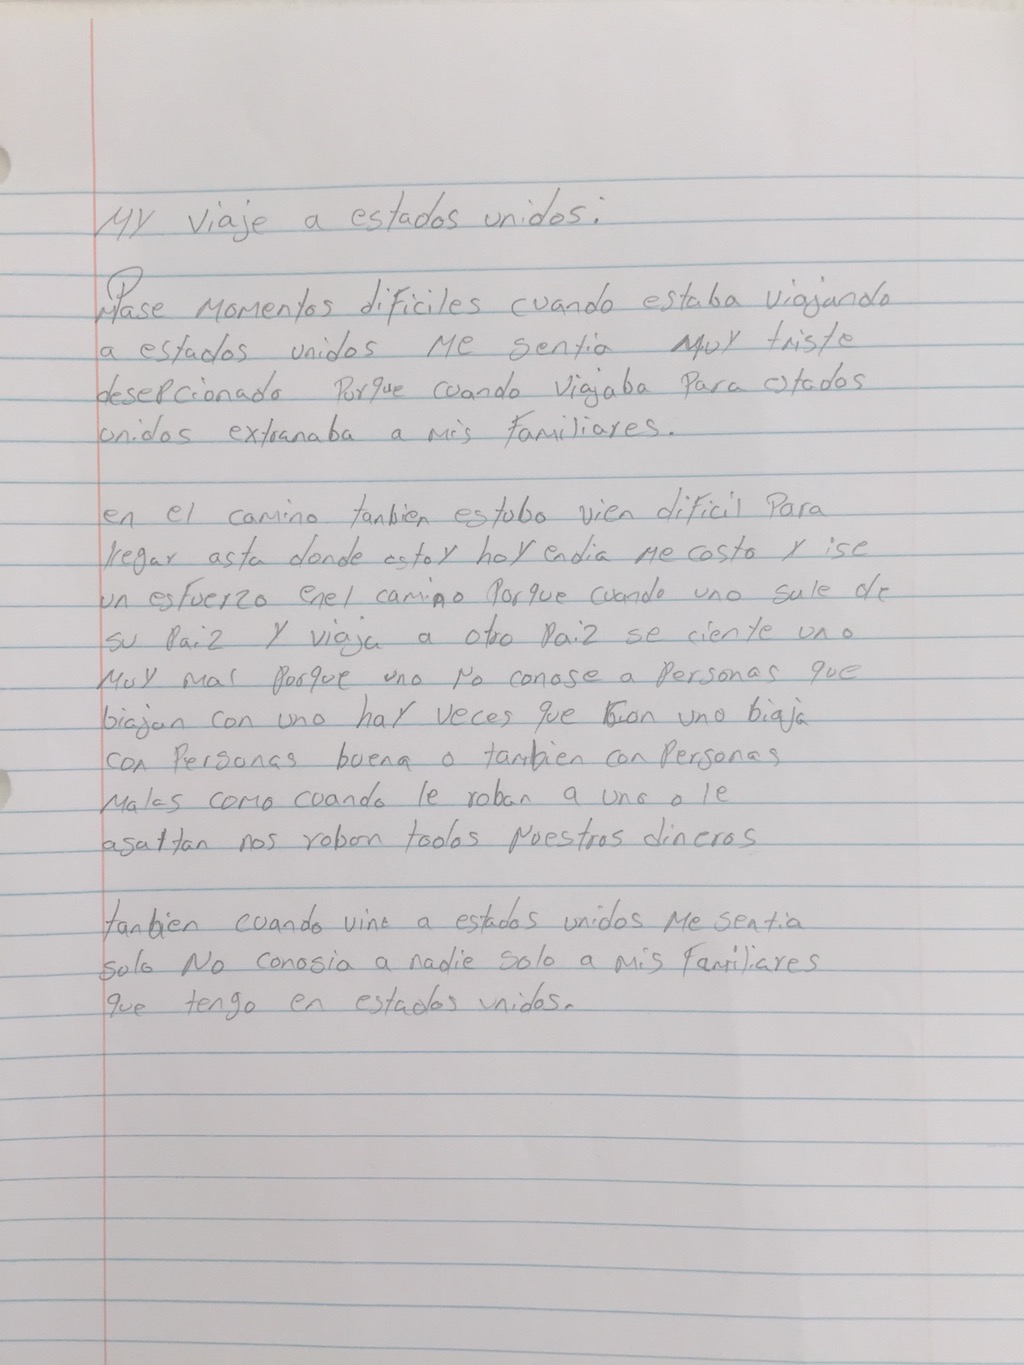 MY viaje a estados unidos:
Pase momentos dificiles cuando estaba viajando
a estados unidos me sentia muy triste
desepcionado Porque cuando viajaba Para estados
unidos extranaba a mis familiares.
en el camino tanbien estubo vien dificil Para
llegar asta donde estoy hoy endia me costo y ise
un esfuerzo enel camino Porque cuando uno sale de
su Paiz y viaja a otro Paiz se ciente uno
muy mal Porque uno no conose a Personas que
biajan con uno hay veces que uno biaja
con Personas buena o tambien con Personas
malas como cuando le roban a uno o le
asaltan nos roban todos nuestros dineros
tanbien cuando vine a estados unidos me sentia
solo no conosia a nadie solo a mis familiares
que tengo en estados unidos.